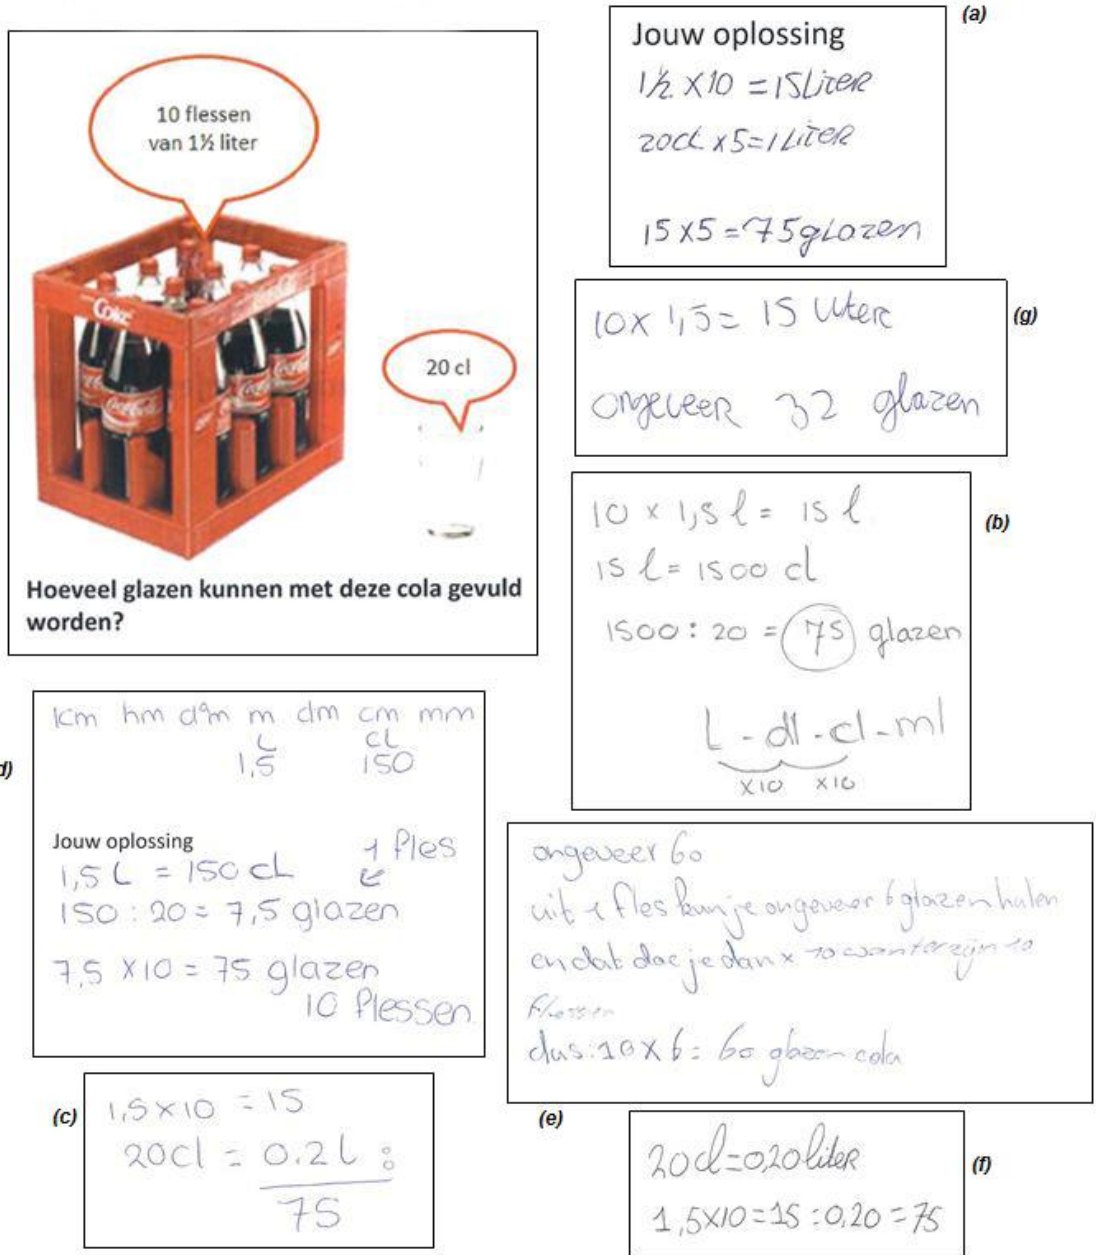 10 flessen
van 1½ liter
Coke
Coca-Cola
20 cl
Hoeveel glazen kunnen met deze cola gevuld
worden?
(a)
Jouw oplossing
1½ x10 = 15 Liter
20cl x5=1 Liter
15x5=75 glazen
(g)
10x 1,5= 15 liter
ongeveer 32 glazen
(b)
10 x 1,5 l = 15 l
15 l = 1500 cl
1500 : 20 = 75 glazen
L - dl - cl - ml
x10 x10
d)
km hm dam m dm cm mm
L cL
1,5 150
Jouw oplossing
1 fles
1,5 L = 150 cL
150 : 20 = 7,5 glazen
7,5 x10 = 75 glazen
10 flessen
ongeveer 60
uit 1 fles kun je ongeveer 6 glazen halen
en dat doe je dan x 10 want er zijn 10
flessen
dus: 10 x 6 = 60 glazen cola
(e)
(c)
1,5 x 10 = 15
20cl = 0.2 l :
75
(f)
20cl=0,20 liter
1,5x10=15:0,20=75